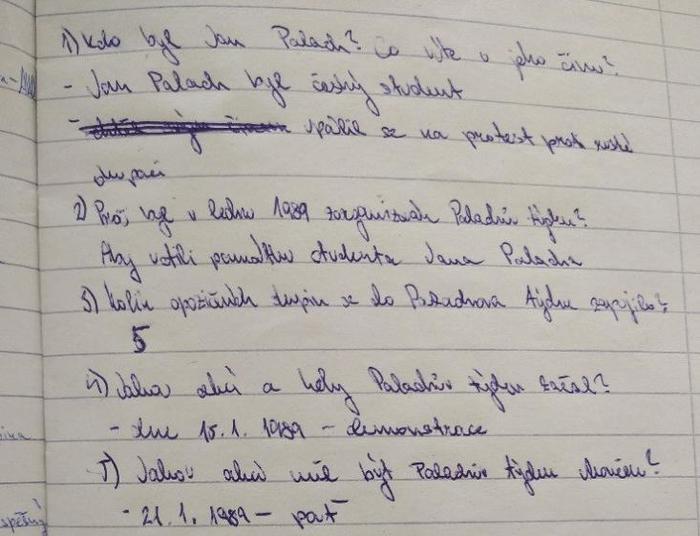 1) Kdo byl Jan Palach? Co víte o jeho činu?
- Jan Palach byl český student
- spálil se na protest proti ruské
okupaci
2) Proč byl v lednu 1989 zorganizován Palachův týden?
Aby uctili památku studenta Jana Palacha
3) Kolik opozičních skupin se do Palachova týdnu zapojilo?
5
4) Jakou akcí a kdy Palachův týden začal?
- dne 15.1. 1989 - demonstrace
5) Jakou akcí měl být Palachův týden ukončen?
- 21.1. 1989 - pouť